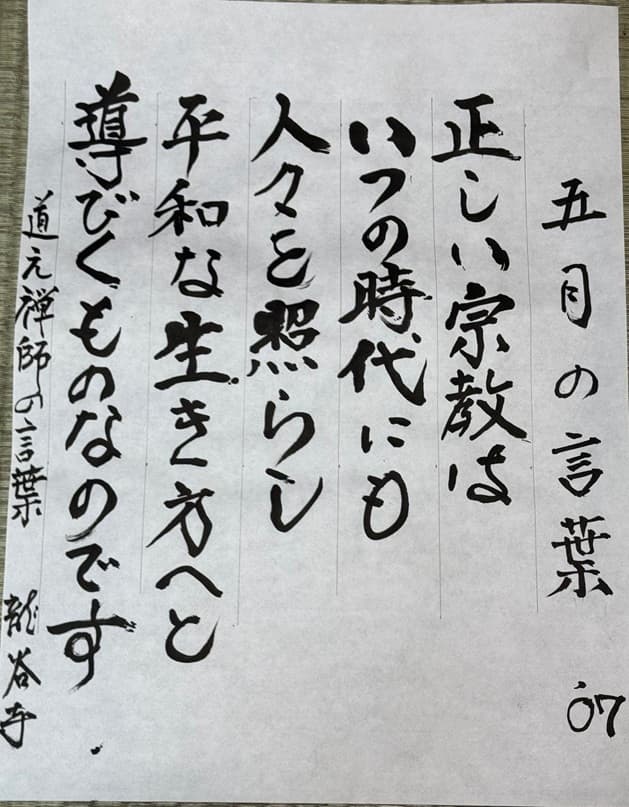 五月の言葉 '07
正しい宗教は
いつの時代にも
人々を照らし
平和な生き方へと
導びくものなのです
道元禅師の言葉 龍谷寺